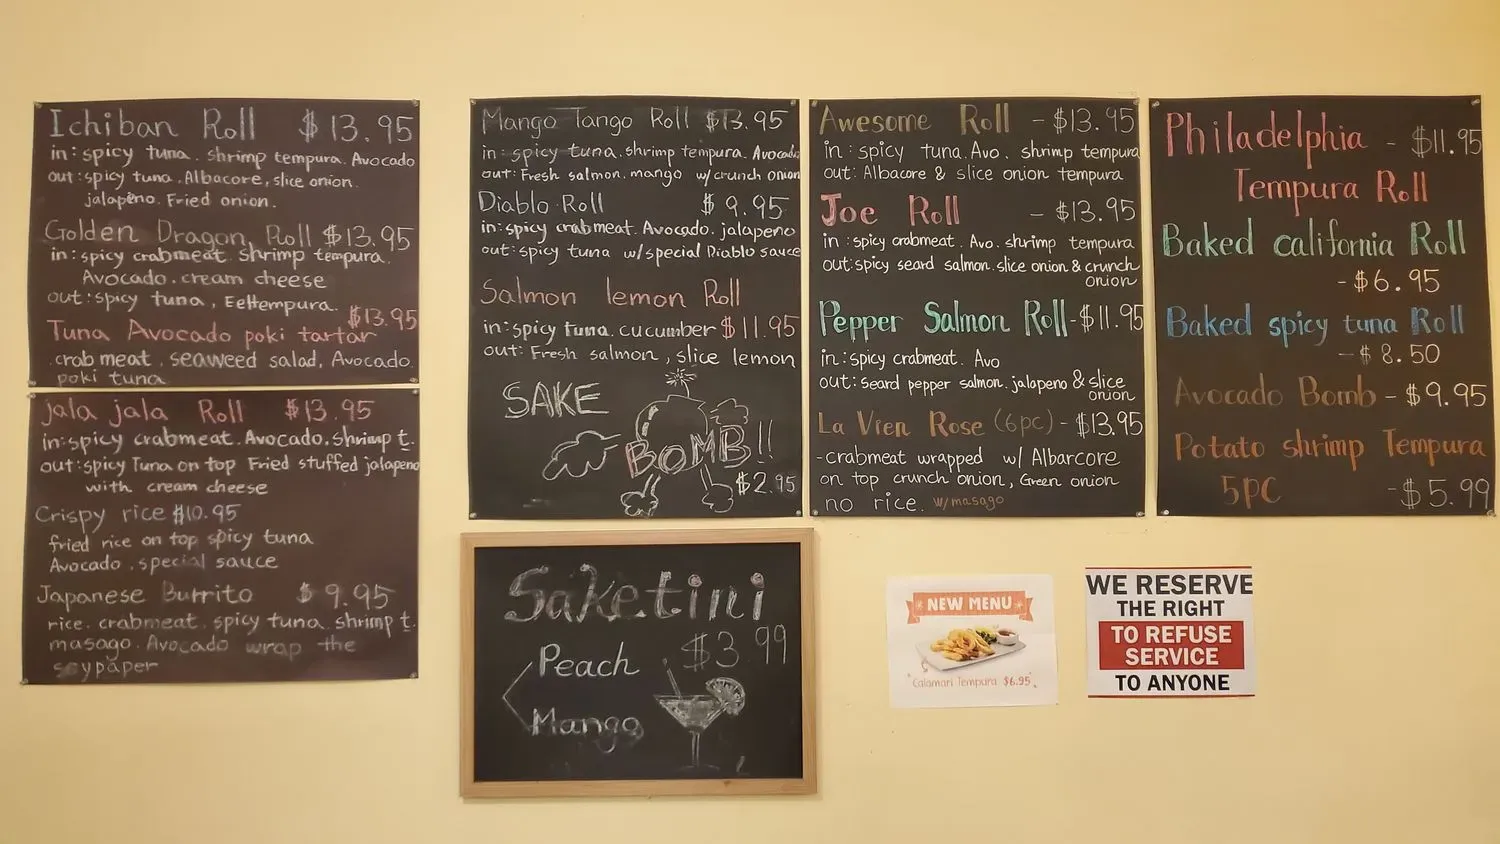 Ichiban Roll $13.95
in: spicy tuna. shrimp tempura. Avocado
out: spicy tuna. Albacore, slice onion.
jalapeño. Fried onion.
Golden Dragon Roll $13.95
in: spicy crabmeat. shrimp tempura.
Avocado. cream cheese
out: spicy tuna, Eeltempura.
Tuna Avocado poki tartar $13.95
crab meat. seaweed salad, Avocado.
poki tuna
jala jala Roll $13.95
in: spicy crabmeat. Avocado. shrimp t.
out: spicy Tuna on top Fried stuffed jalapeno
with cream cheese
Crispy rice $10.95
fried rice on top spicy tuna
Avocado. special sauce
Japanese Burrito $9.95
rice. crabmeat. spicy tuna. shrimp t.
masago. Avocado wrap the
soypaper
Mango Tango Roll $13.95
in: spicy tuna. shrimp tempura. Avocado
out: Fresh salmon. mango w/crunch onion
Diablo Roll $9.95
in: spicy crabmeat. Avocado. jalapeno
out: spicy tuna w/special Diablo sauce
Salmon lemon Roll
in: spicy tuna. cucumber $11.95
out: Fresh salmon, slice lemon
SAKE
BOMB!!
$2.95
Saketini
$3.99
Peach
Mango
Awesome Roll - $13.95
in: spicy tuna. Avo. shrimp tempura
out: Albacore & slice onion tempura
Joe Roll - $13.95
in: spicy crabmeat. Avo. shrimp tempura
out: spicy seard salmon. slice onion & crunch
onion
Pepper Salmon Roll - $11.95
in: spicy crabmeat. Avo
out: seard pepper salmon. jalapeno & slice
onion
La Vien Rose (6pc) - $13.95
- crabmeat wrapped w/ Albarcore
on top crunch onion, Green onion
no rice. w/masago
Philadelphia - $11.95
Tempura Roll
Baked california Roll
- $6.95
Baked spicy tuna Roll
- $8.50
Avocado Bomb - $9.95
Potato shrimp Tempura
5pc - $5.99
NEW MENU
Calamari Tempura $6.95
WE RESERVE
THE RIGHT
TO REFUSE
SERVICE
TO ANYONE